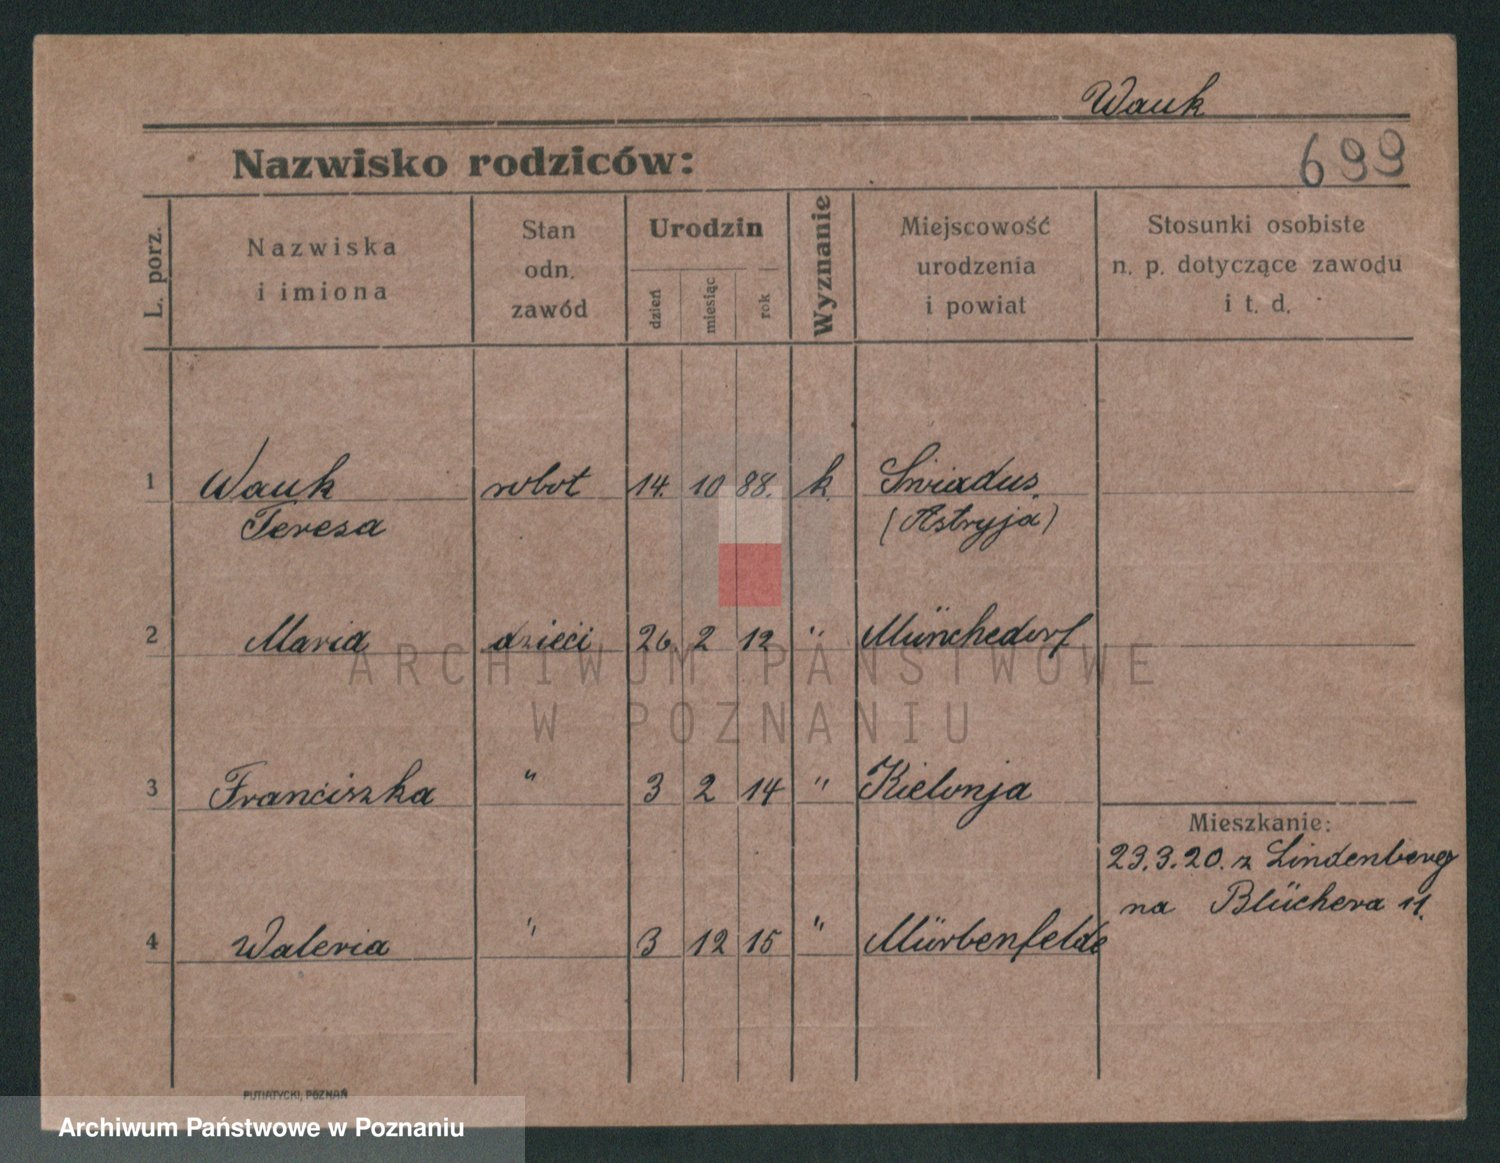 Wauk
Nazwisko rodziców:
699
L. porz.
Nazwiska
i imiona
Stan
odn.
zawód
Urodzin
dzień
miesiąc
rok
Wyznanie
Miejscowość
urodzenia
i powiat
Stosunki osobiste
n. p. dotyczące zawodu
i t. d.
1 Wauk robot 14. 10 88. k.
Teresa (Astryja)
2 Maria dzieci 26. 2 12 " Münchedorf
ARCHIWUM PAŃSTWOWE
W POZNANIU
3 Franciszka " 3 2 14 " Kielonja
Mieszkanie:
23.3.20. z Lindenberg
na Blüchera 11.
4 Waleria " 3 12 15 " Mürbenfelde
PUTIATYCKI, POZNAŃ
Archiwum Państwowe w Poznaniu